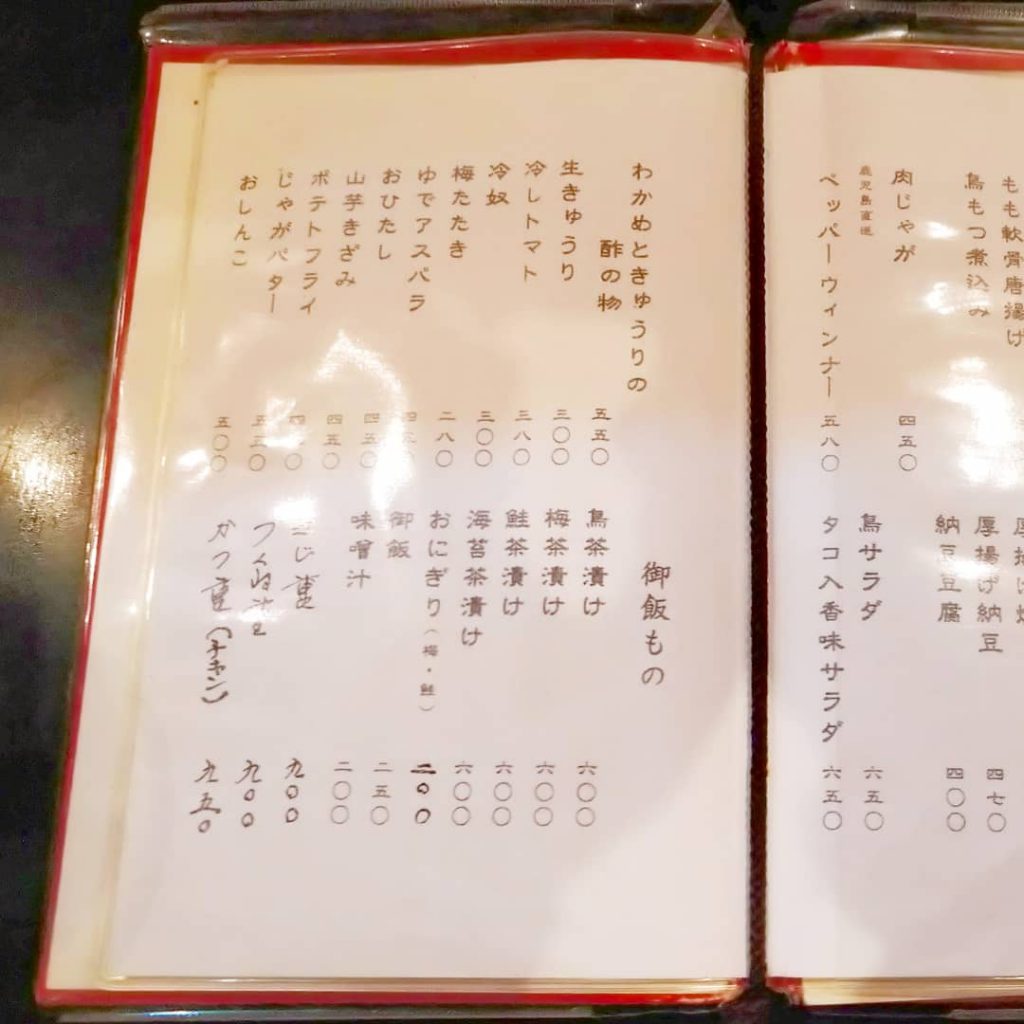 もも軟骨唐揚げ
鳥もつ煮込み
肉じゃが 四五〇
鹿児島直送
ペッパーウィンナー 五八〇
厚揚げ納豆 四七〇
納豆豆腐 四〇〇
鳥サラダ 六五〇
タコ入香味サラダ 六五〇
わかめときゅうりの
酢の物 五五〇
生きゅうり 三〇〇
冷しトマト 三八〇
冷奴 三〇〇
梅たたき 二八〇
ゆでアスパラ
おひたし 四五〇
山芋きざみ 四五〇
ポテトフライ
じゃがバター 五五〇
おしんこ 五〇〇
御飯もの
鳥茶漬け 六〇〇
梅茶漬け 六〇〇
鮭茶漬け 六〇〇
海苔茶漬け 六〇〇
おにぎり(梅・鮭) 二〇〇
御飯 二五〇
味噌汁 二〇〇
重 九〇〇
つくね 九〇〇
かつ重(チキン) 九五〇